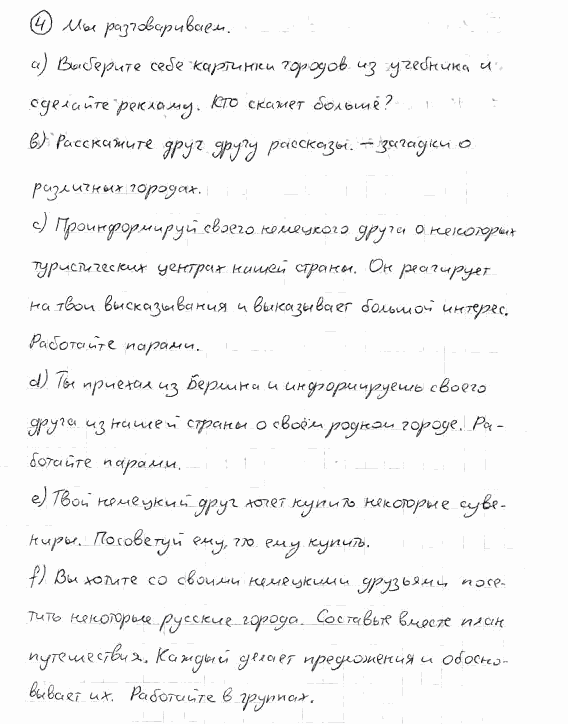 ④ Мы разговариваем.
a) Выберите себе картинки городов из учебника и
сделайте рекламу. Кто скажет больше?
b) Расскажите друг другу рассказы. – загадки о
различных городах.
c) Проинформируй своего немецкого друга о некоторых
туристических центрах нашей страны. Он реагирует
на твои высказывания и выказывает большой интерес.
Работайте парами.
d) Ты приехал из Берлина и информируешь своего
друга из нашей страны о своём родном городе. Ра-
ботайте парами.
e) Твой немецкий друг хочет купить некоторые суве-
ниры. Посоветуй ему, что ему купить.
f) Вы хотите со своими немецкими друзьями посе-
тить некоторые русские города. Составьте вместе план
путешествия. Каждый делает предложения и обосно-
вывает их. Работайте в группах.